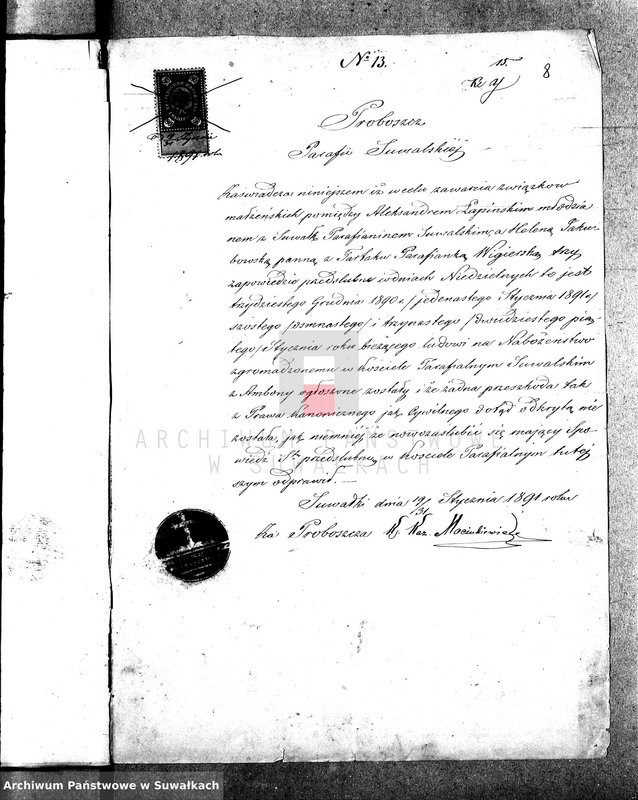 № 13.
15.
8
Proboszcz
Parafii Suwalskiej
Zaświadcza niniejszem iż w celu zawarcia związków
małżeńskich pomiędzy Aleksandrem Łapińskim młodzia
nem z Suwałk Parafianinem Suwalskim, a Heleną Jaku-
bowską panną z Tartaku Parafianką Wigierską trzy
zapowiedzie przedślubne w dniach Niedzielnych to jest
trzydziestego Grudnia 1890 r. / jedenastego Stycznia 1891 r/
szóstego /osmnastego/ i trzynastego /dwudziestego pią-
tego/ Stycznia roku bieżącego ludowi na Nabożeństwo
zgromadzonemu w kościele Parafialnym Suwalskim
z Ambony ogłoszone zostały i że żadna przeszkoda tak
z Prawa kanonicznego jak Cywilnego dotąd odkrytą nie
została, jak niemniej że nowozaślubić się mający Spo-
wiedź Stą przedślubną w kościele Parafialnym tutej
szym odprawił. —
Suwałki dnia 19/31 Stycznia 1891 roku
Za Proboszcza X. Kaz. Macinkiewicz
Stycznia
1891 roku
ARCHIWUM PAŃSTWOWE
W SUWAŁKACH
Archiwum Państwowe w Suwałkach